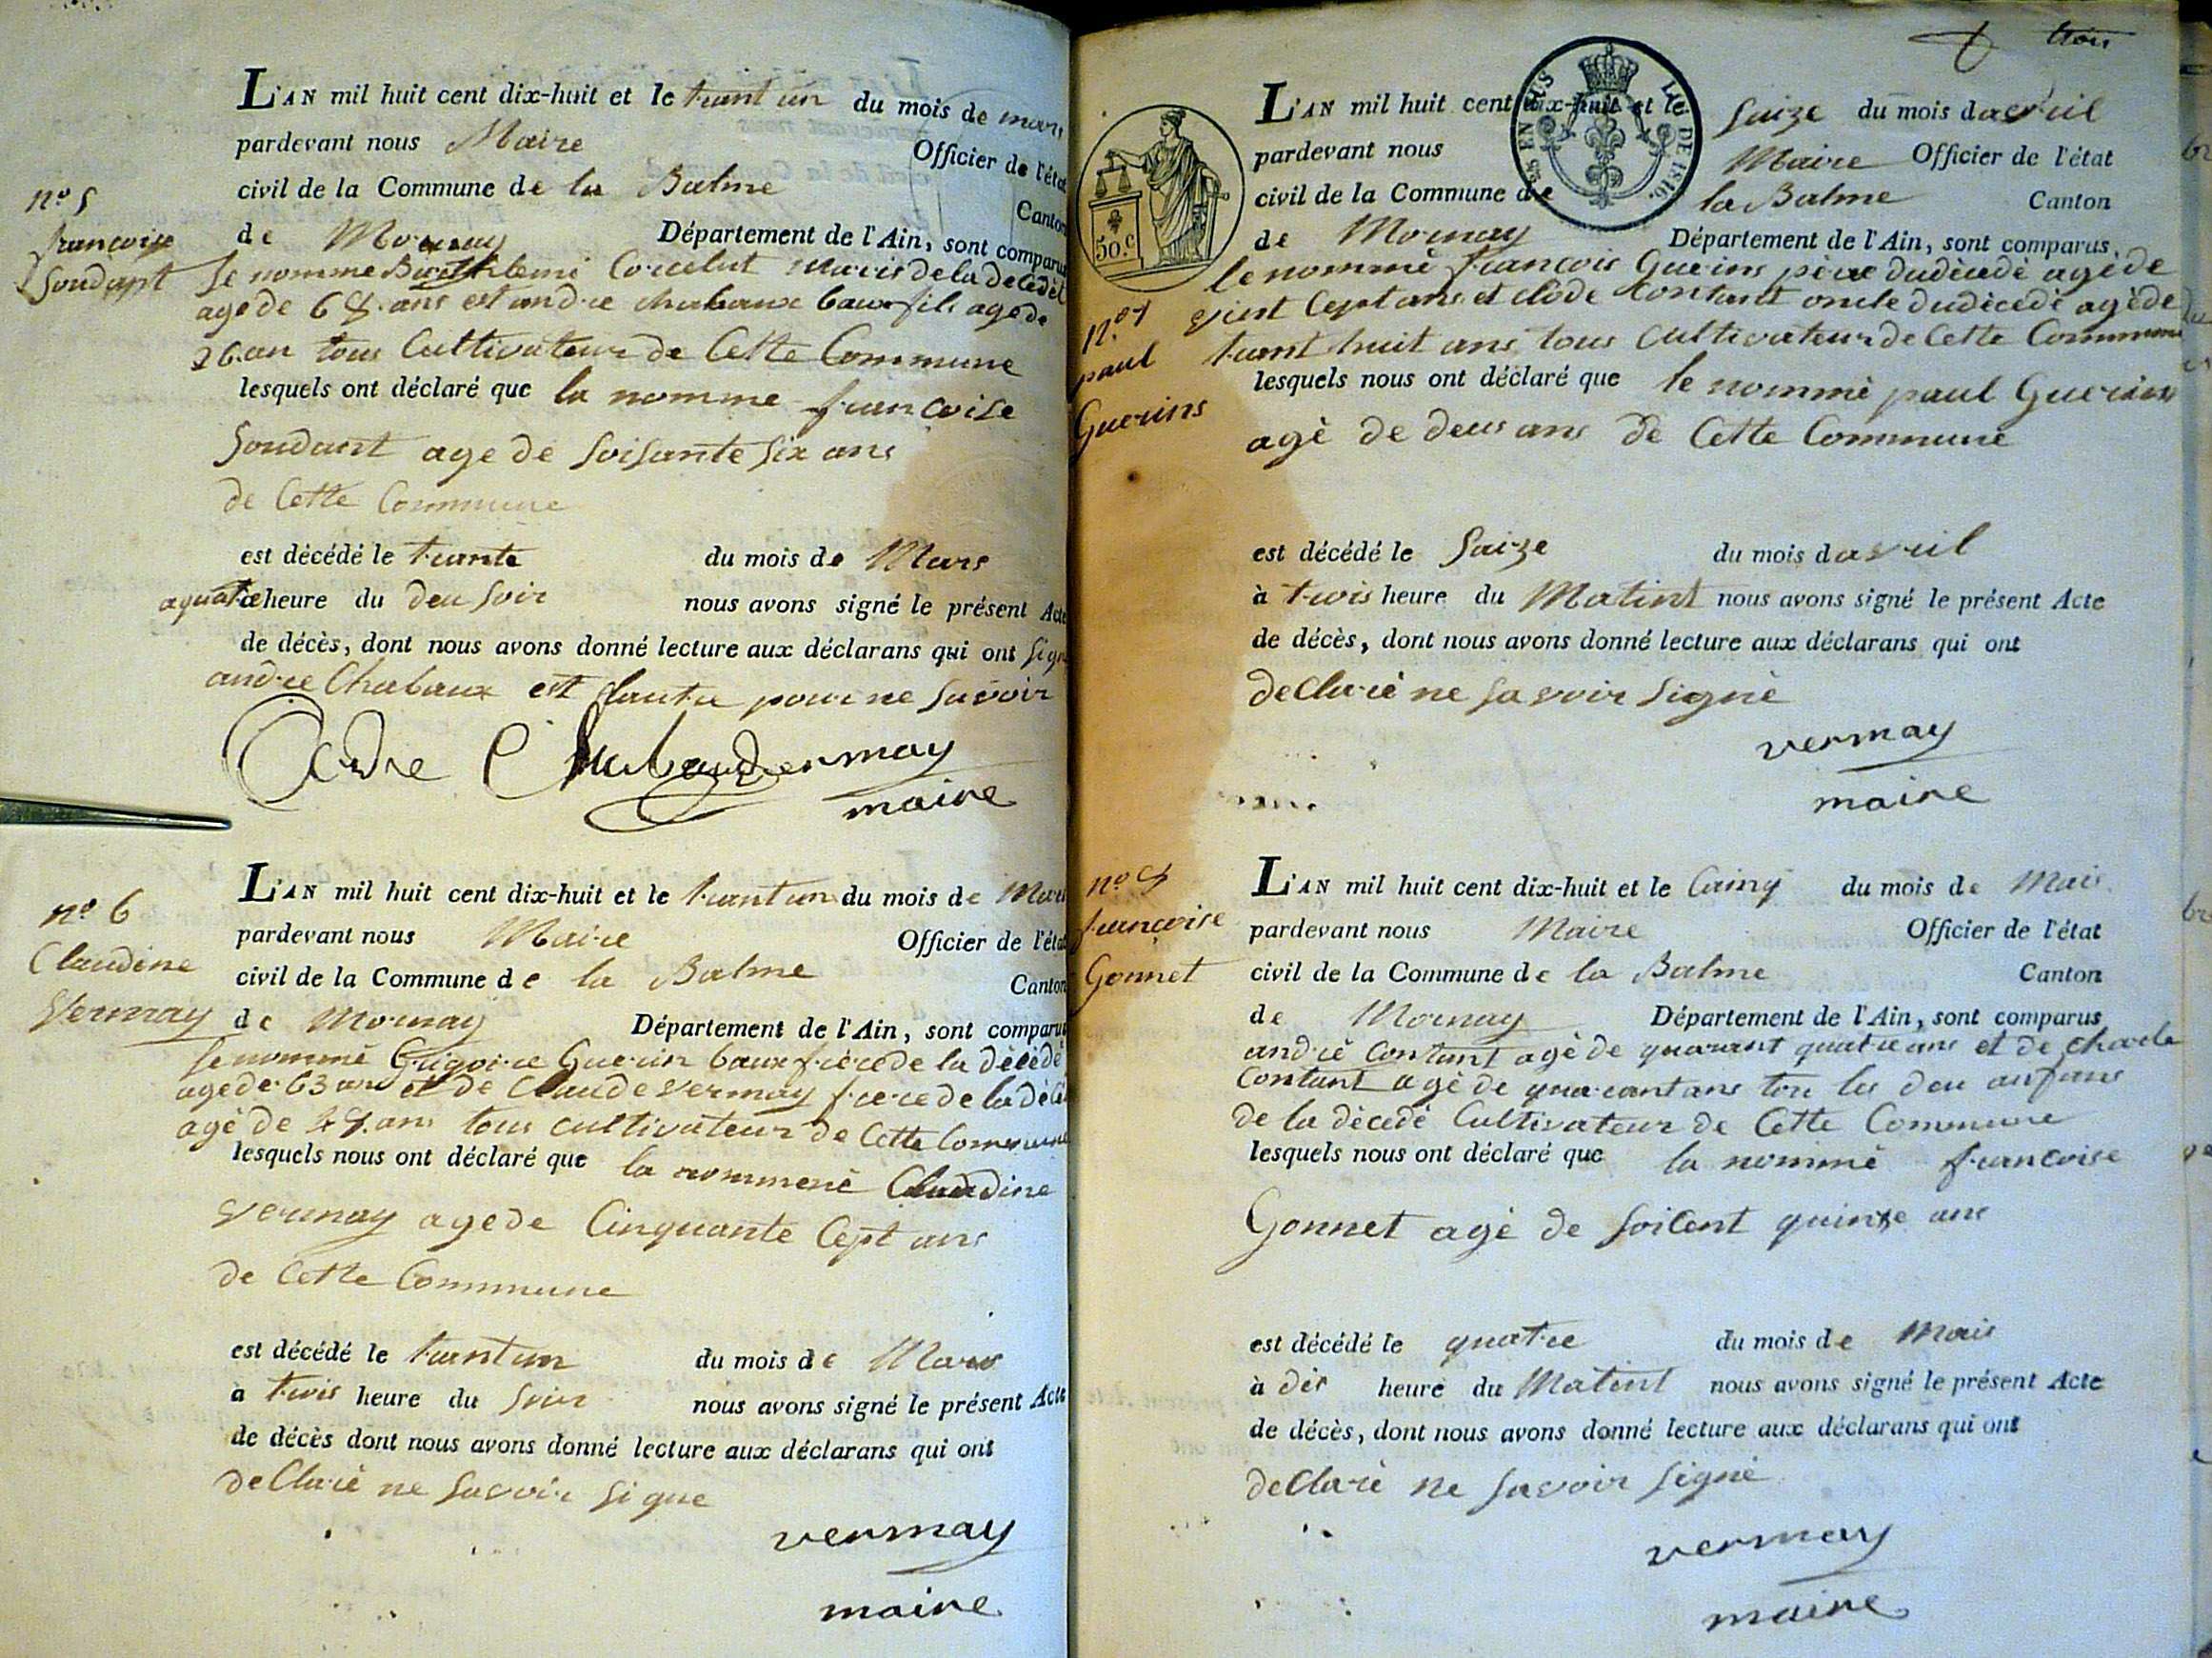 L'AN mil huit cent dix-huit et le trant un du mois de mars
pardevant nous Maire Officier de l'état
civil de la Commune de la Balme Canton
de Mornay Département de l'Ain, sont comparus
le nomme Corcelut maris de la decedét
age de 68. ans est andre chabaux baux fils age de
26. an tous Cultivateur de Cette Commune
lesquels ont déclaré que la nomme francoise
Soudant age de Soisante Six ans
de Cette Commune
est décédé le trante du mois de Mars
a quatre heure du deu Soir nous avons signé le présent Acte
de décès, dont nous avons donné lecture aux déclarans qui ont Signé
andre Chabaux est lautre pour ne Savoir
Andre Chabaud vernay
maire
n.o 5
francoise
Soudant
L'AN mil huit cent dix-huit et le trant un du mois de Mars
pardevant nous Maire Officier de l'état
civil de la Commune de la Balme Canton
de Mornay Département de l'Ain, sont comparus
le nommé Grigoire Guerin baux frere de la décédé
age de 63 ans et de Claude vernay frere de la décé
agé de 48. ans tous cultivateur de Cette Commune
lesquels nous ont déclaré que la nommené Claudine
vernay age de Cinquante Cept ans
de Cette Commune
est décédé le trantun du mois de Mars
à trois heure du Soir nous avons signé le présent Acte
de décès dont nous avons donné lecture aux déclarans qui ont
declaré ne Savoir Signe
vernay
maire
n.o 6
Claudine
Vernay
trois
L'AN mil huit cent dix-huit et le Saize du mois davril
pardevant nous Maire Officier de l'état
civil de la Commune de la Balme Canton
de Mornay Département de l'Ain, sont comparus
le nommé francois Guerins père dudécédé agé de
vint Cept ans et clode Contant oncle dudécédé agé de
trant huit ans tous Cultivateur de Cette Commune
lesquels nous ont déclaré que le nommé paul Guerins
agé de deus ans de Cette Commune
est décédé le Saize du mois davril
à trois heure du Matint nous avons signé le présent Acte
de décès, dont nous avons donné lecture aux déclarans qui ont
declaré ne Savoir Signé
vernay
maire
50. c.
LIEU DE 1816.
n.o 7
paul
Guerins
L'AN mil huit cent dix-huit et le Cainq du mois de Mais
pardevant nous Maire Officier de l'état
civil de la Commune de la Balme Canton
de Mornay Département de l'Ain, sont comparus
andré Contant agé de quarant quatre ans et de charle
Contant agé de quarantans tou les deu anfans
de la décedé Cultivateur de Cette Commune
lesquels nous ont déclaré que la nommé francoise
Gonnet agé de Soicent quinze ans
est décédé le quatre du mois de Mais
à dis heure du Matint nous avons signé le présent Acte
de décès, dont nous avons donné lecture aux déclarans qui ont
declaré ne Savoir Signé
vernay
maire
n.o 8
francoise
Gonnet